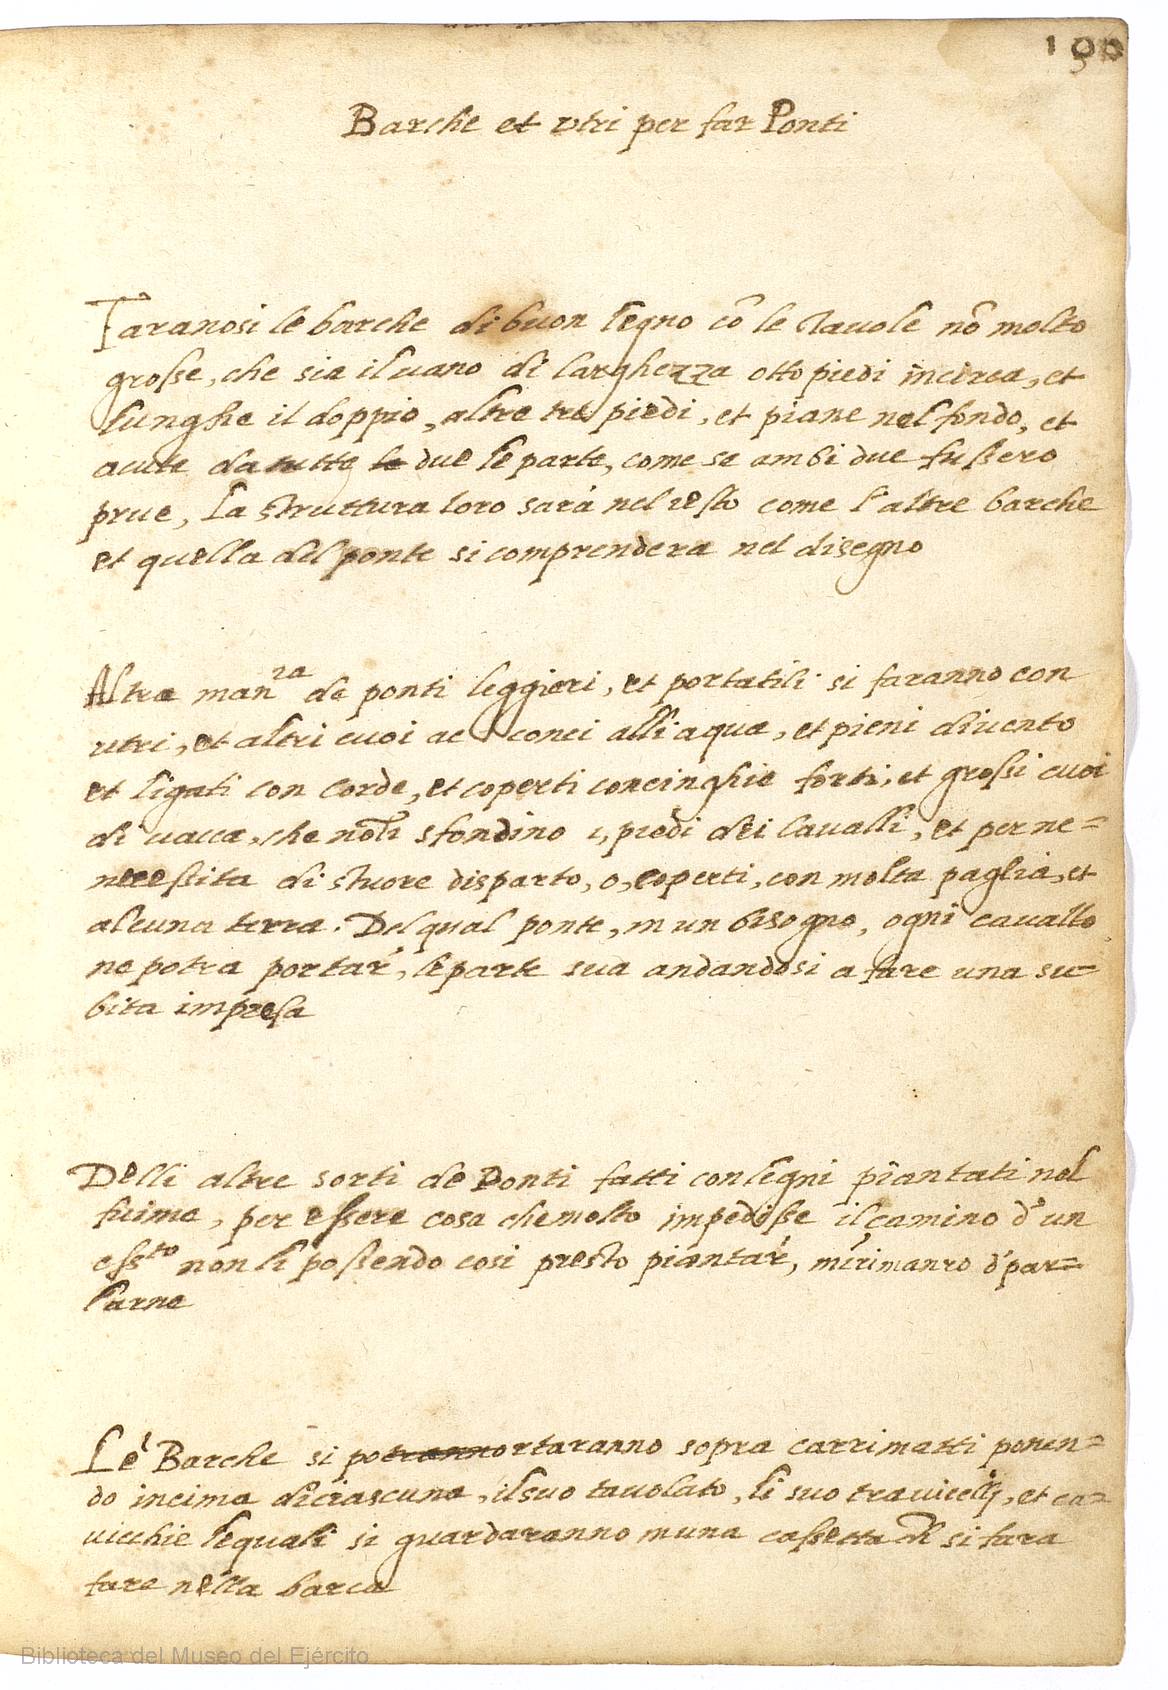 190
Barche et vtri per far Ponti
Faranosi le barche di buon legno cō le tauole nō molto
grosse, che sia il uano di larghezza otto piedi incirca, et
lunghe il doppio, altre tre piedi, et piane nel fondo, et
acute da tutte le due le parte, come se ambi due fussero
prue, La struttura loro sarà nel resto come l'altre barche
et quella del ponte si comprendera nel disegno
Altra man.ra de ponti leggieri, et portatili si faranno con
utri, et altri cuoi ac conci all'aqua, et pieni di uento
et ligati con corde, et coperti con cinghie forti, et grossi cuoi
di uacca, che sfondino i, piedi dei Caualli, et per ne=
necessita di stuore disparto, o, coperti, con molta paglia, et
alcuna terra. Del qual ponte, in un bisogno, ogni cauallo
ne potra portar, le parte sua andandosi a fare una su=
bita impresa
Delli altre sorti de Ponti fatti con legni piantati nel
fiume, per essere cosa che molto impedisse il camino d'un
ess.to non li possendo cosi presto piantar, mi rimanro d' par=
larne
Le Barche si potrannortaranno sopra carrimatti ponen=
do incima di ciascuna, il suo tauolato, li suo trauicelli, et ca=
uicchie lequali si guardaranno in una cassetta ch si fara
fare nella barca
Biblioteca del Museo del Ejército